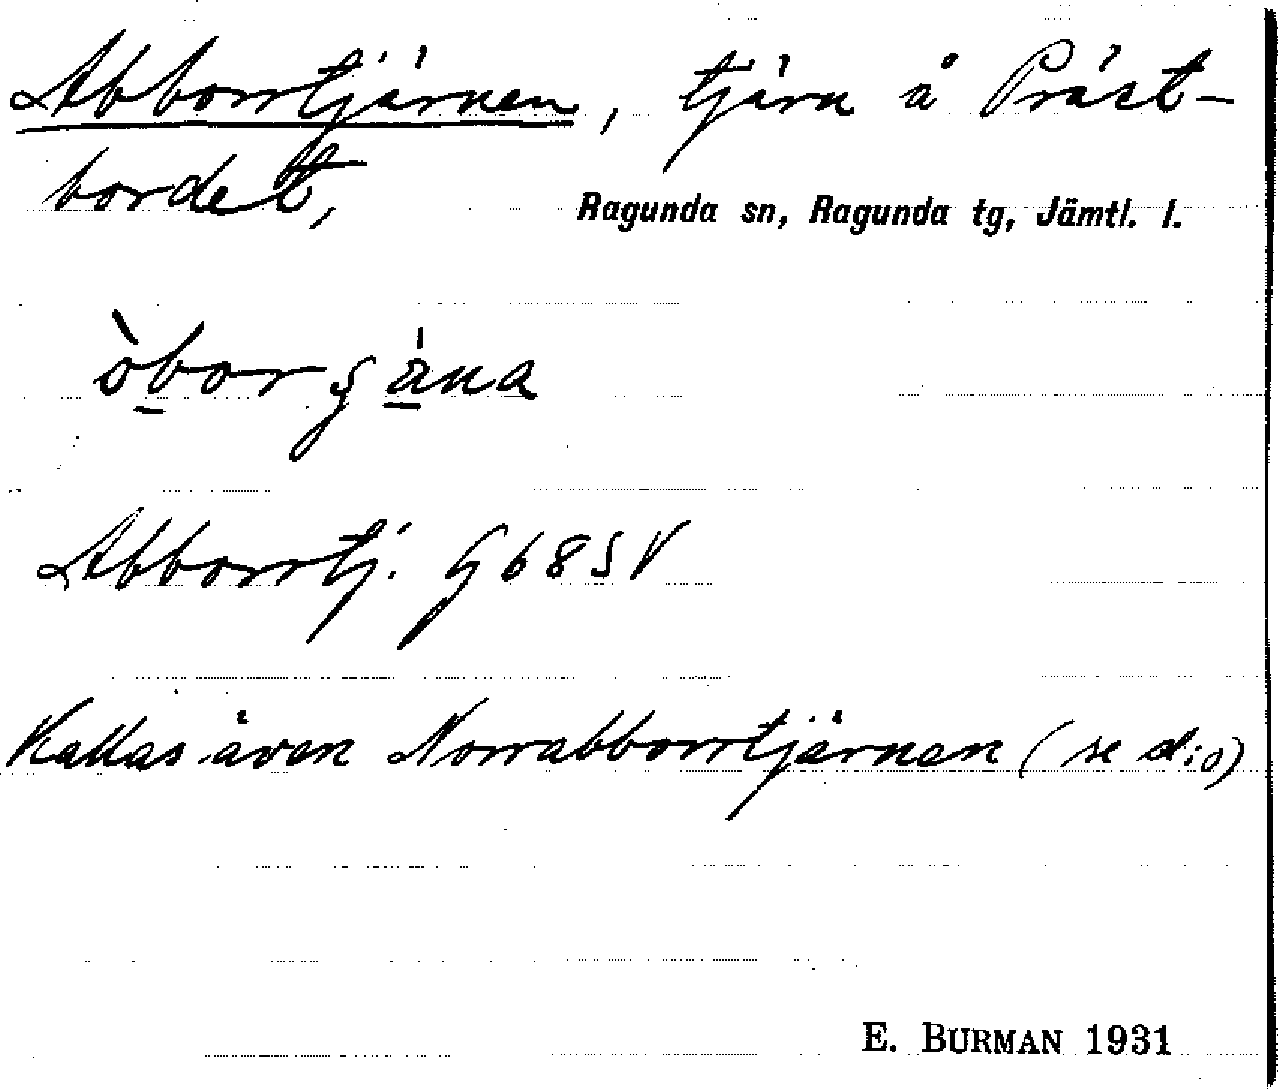 Abborrtjärnen, tjärn å Präst-
bordet,
Ragunda sn, Ragunda tg, Jämtl. l.
Abborrtj. G68SV
Kallas även Norrabborrtjärnen (se d:o)
E. BURMAN 1931